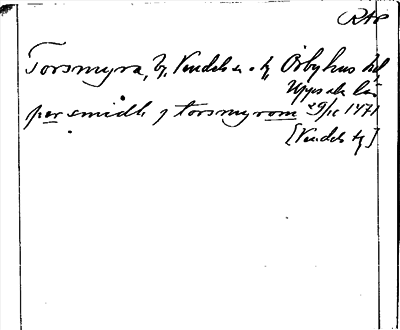 RAP
Torsmyra, by, Vendels sn o tg Örbyhus hd,
Uppsala län
per smidh j torsmyrom 29/10 1471
[Vendels tg]